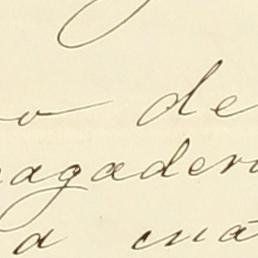 o de
agader
a cua